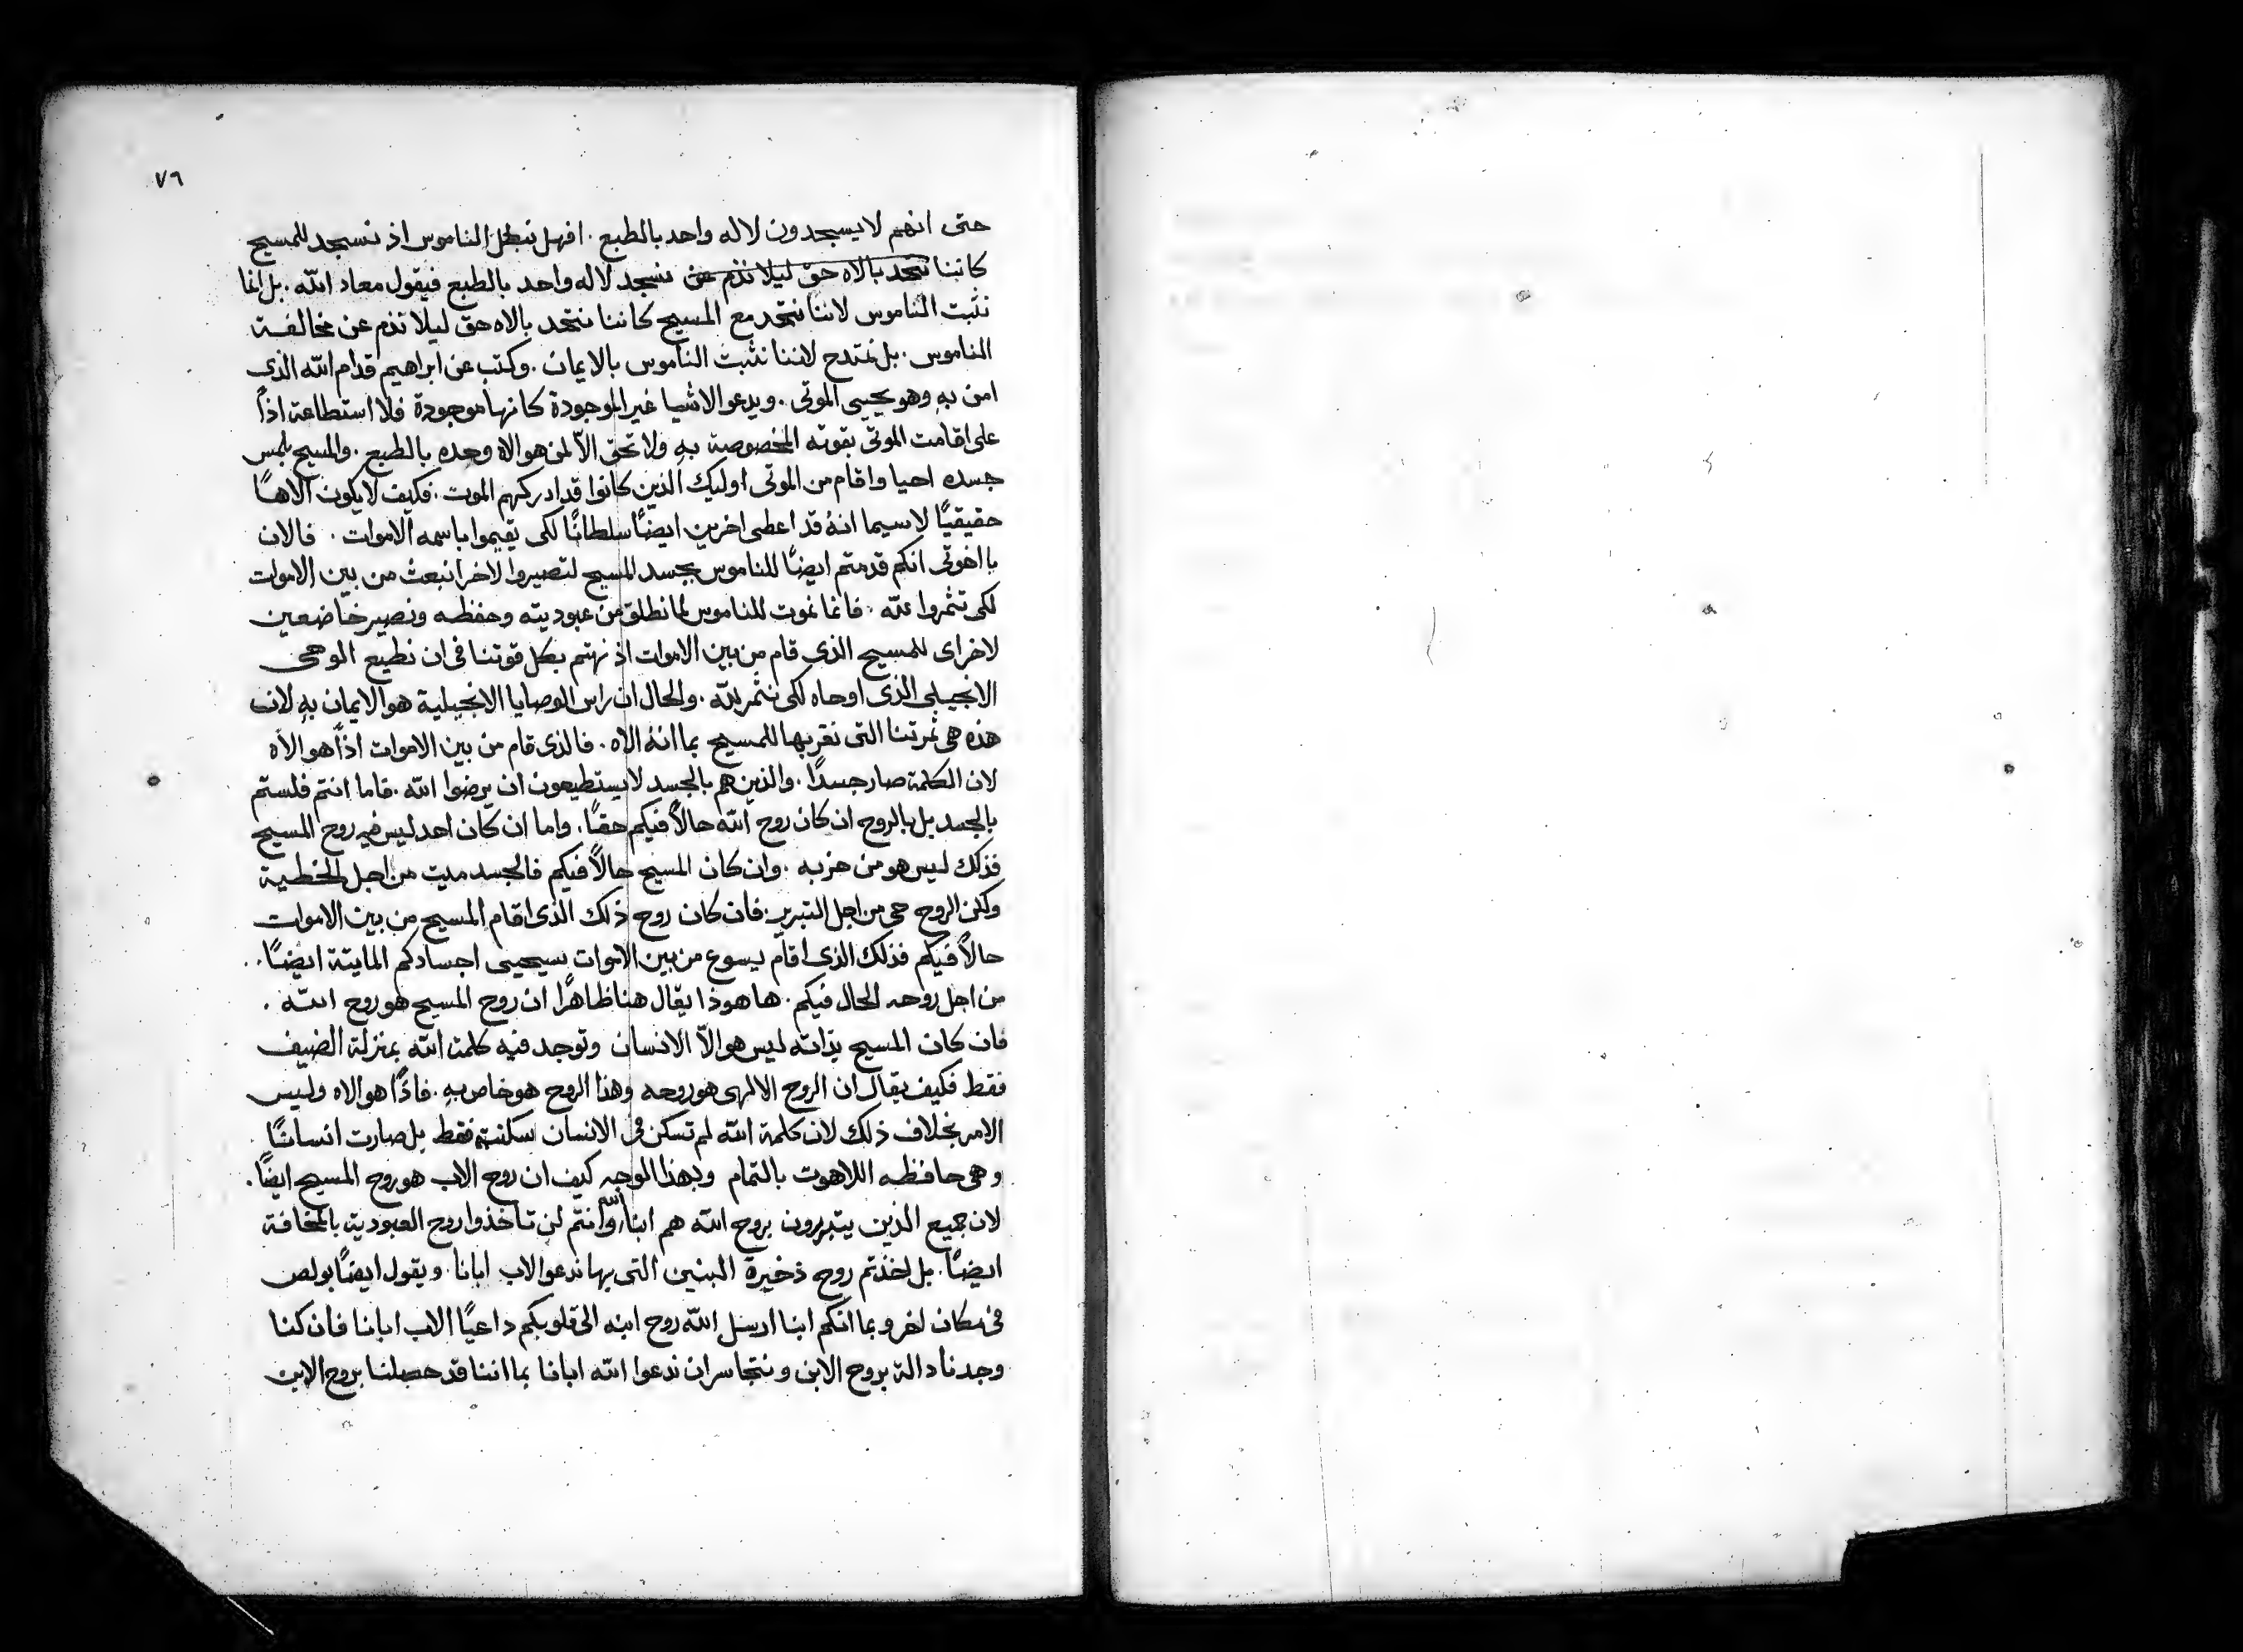 ٧٦
حتى انهم لا يسجدون لاله واحد بالطبع . افهل نبطل الناموس اذ نسجد للمسيح
كاننا نتحد بالاه حق ليلا نذم عن نسجد لاله واحد بالطبع فيقول معاد الله . بل انما
نثبت الناموس لاننا نتحد مع المسيح كاننا نتحد بالاه حق ليلا نذم عن مخالفة
الناموس . بل نمتدح لاننا نثبت الناموس بالايمان . وكتب عن ابراهيم قدام الله الذي
امن بهِ وهو يحيي الموتى . ويدعو الاشيا غير الموجودة كانها موجودة فلا استطاعة اذاً
على اقامت الموتى بقوته المخصوصة بهِ ولا تحق الاّ لمن هو الاه وحده بالطبع . والمسيح بلمس
جسده احيا واقام من الموتى اوليك الذين كانوا قد ادركهم الموت . فكيف لا يكون الاهاً
حقيقيًا لاسيما انهُ قد اعطى اخرين ايضًا سلطانًا لكي يقيموا باسمه الاموات . فالان
يا اخوتي انكم قد متم ايضًا للناموس بجسد المسيح لتصيروا لاخر انبعث من بين الاموات
لكي تثمروا لله . فانما نموت للناموس لما نطلق من عبوديته وحفظه ونصير خاضعين
لاخر اى للمسيح الذي قام من بين الاموات اذ نهتم بكل قوتنا في ان نطيع الوحى
الانجيلي الذي اوحاه لكي نثمر لله . والحال ان راس الوصايا الانجيلية هو الايمان بهِ لان
هذه هي ثمرتنا التي نقربها للمسيح بما انهُ الاه . فالذي قام من بين الاموات اذاً هو الاه
لان الكلمة صار جسدًا . والذين هم بالجسد لا يستطيعون ان يرضوا الله . فاما انتم فلستم
بالجسد بل بالروح ان كان روح الله حالاً فيكم حقًا . واما ان كان احد ليس فيه روح المسيح
فذلك ليس هو من حزبه . وان كان المسيح حالاً فيكم فالجسد ميت من اجل الخطية
ولكن الروح حي من اجل التبرير . فان كان روح ذلك الذي اقام المسيح من بين الاموات
حالاً فيكم فذلك الذي اقام يسوع من بين الاموات سيحيي اجسادكم المايتة ايضًا .
من اجل روحه الحال فيكم . ها هوذا يقال هنا ظاهرًا ان روح المسيح هو روح الله .
فان كان المسيح بذاته ليس هو الاّ الانسان وتوجد فيه كلمة الله بمنزلة الضيف
فقط فكيف يقال ان الروح الالهى هو روحه وهذا الروح هو خاص بهِ . فاذًا هو الاه وليس
الامر بخلاف ذلك لان كلمة الله لم تسكن في الانسان فقط بل صارت انسانًا
وهي حافظه اللاهوت بالتمام وبهذا الوجه كيف ان روح الاب هو روح المسيح ايضًا .
لان جميع الذين يتبررون بروح الله هم ابنا الله وانتم لن تاخذوا روح العبودية بالمخافة
ايضًا . بل اخذتم روح ذخيرة البنين التي بها ندعو الاب ابانا . ويقول ايضًا بولص
في مكان اخر وبما انكم ابنا ارسل الله روح ابنه الى قلوبكم داعيًا الاب ابانا فان كنا
وجدنا دالة بروح الابن ونتجاسر ان ندعوا الله ابانا بما اننا قد حصلنا بروح الابن